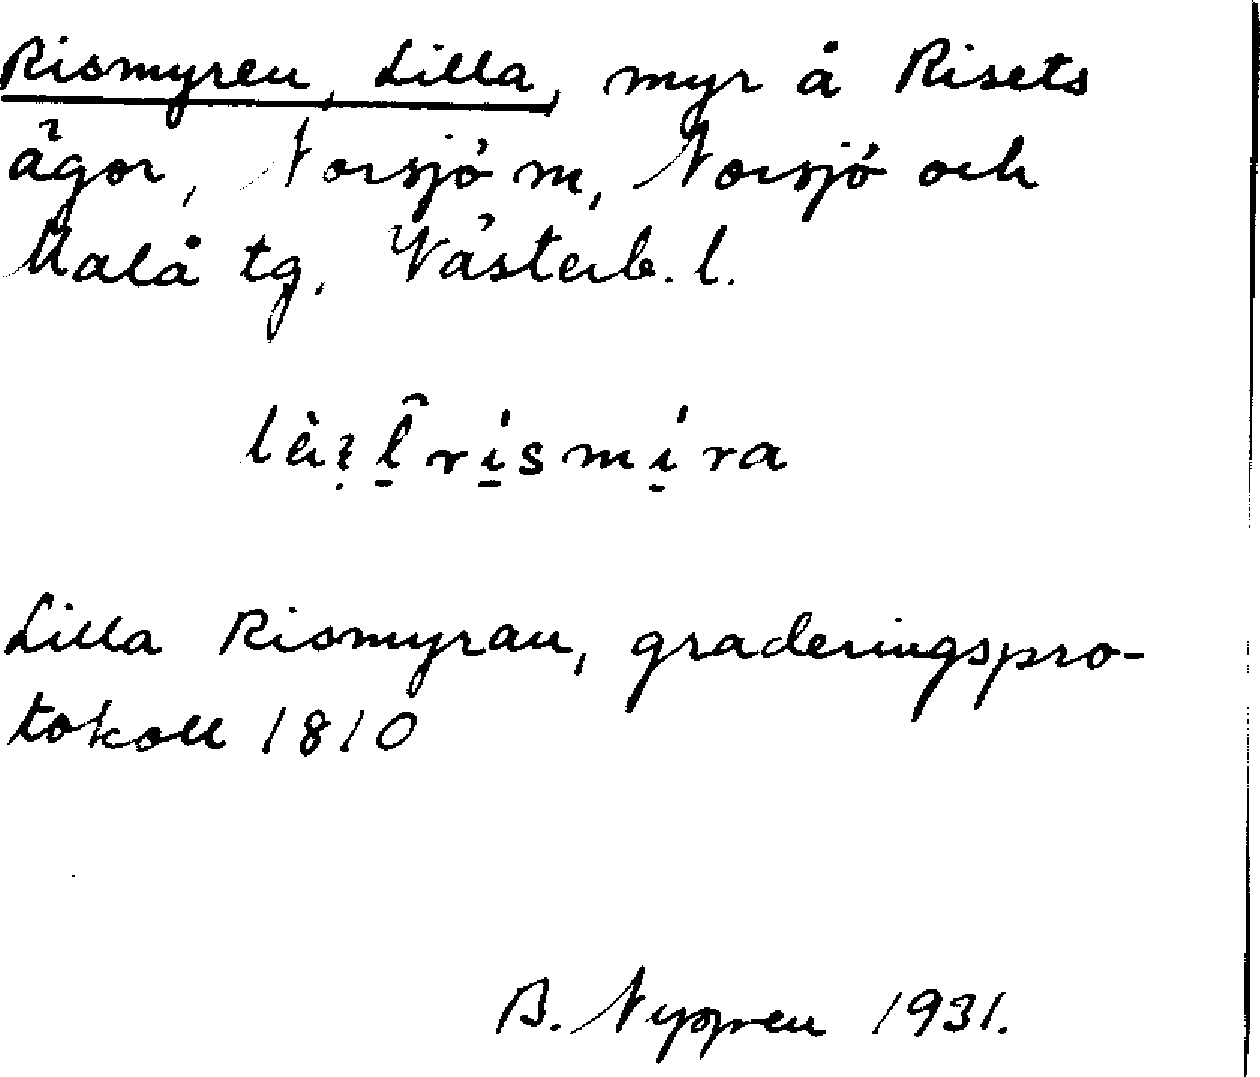 Rismyren, Lilla, myr å Risets
ägor, Norsjö m, Norsjö och
Malå tg. Västerb. l.
Lilla Rismyran, graderingspro-
tokoll 1810
B. Nyppren 1931.